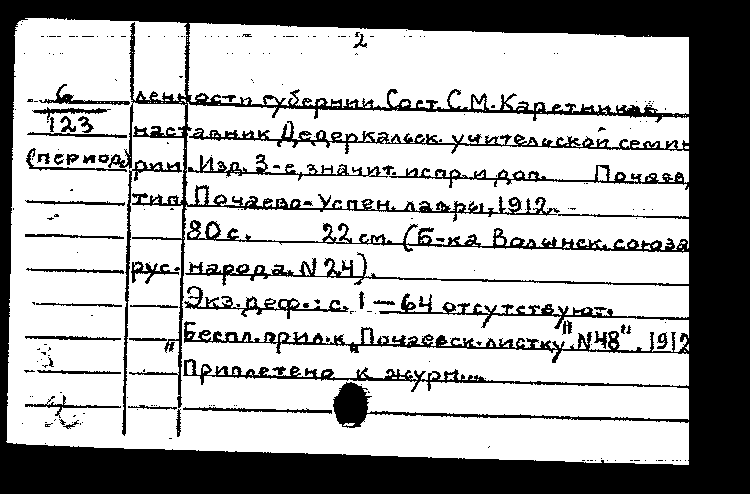 2
6
123
(период.)
ленности губернии. Сост. С.М. Каретников,
наставник Дедеркальск. учительской семин
рии. Изд. 3-е, значит. испр. и доп. Почаев,
тип. Почаево-Успен. лавры, 1912.
80 с. 22 см. (Б-ка Волынск. союза
рус. народа. N 24).
Экз. деф.: с. 1 — 64 отсутствуют.
" Беспл. прил. к „Почаевск. листку". N 48". 1912
Приплетено к журн....
2